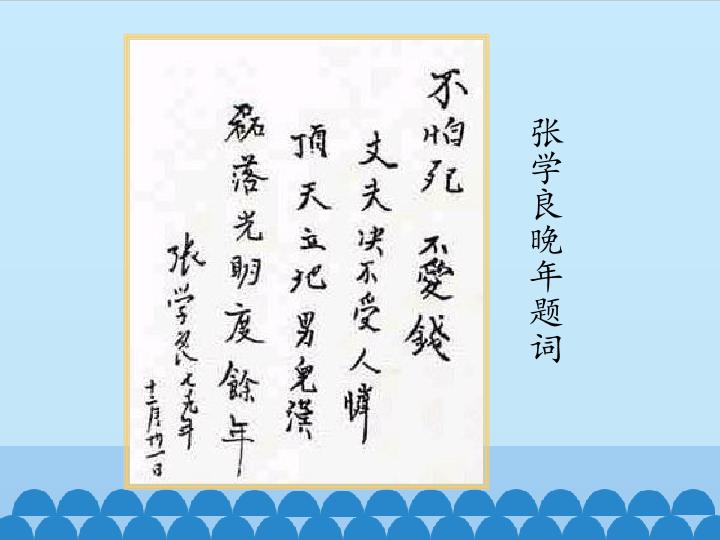 张学良晚年题词
不怕死 不愛錢
丈夫决不受人憐
頂天立地男兒漢
磊落光明度餘年
張学良七十九年
十二月廿一日